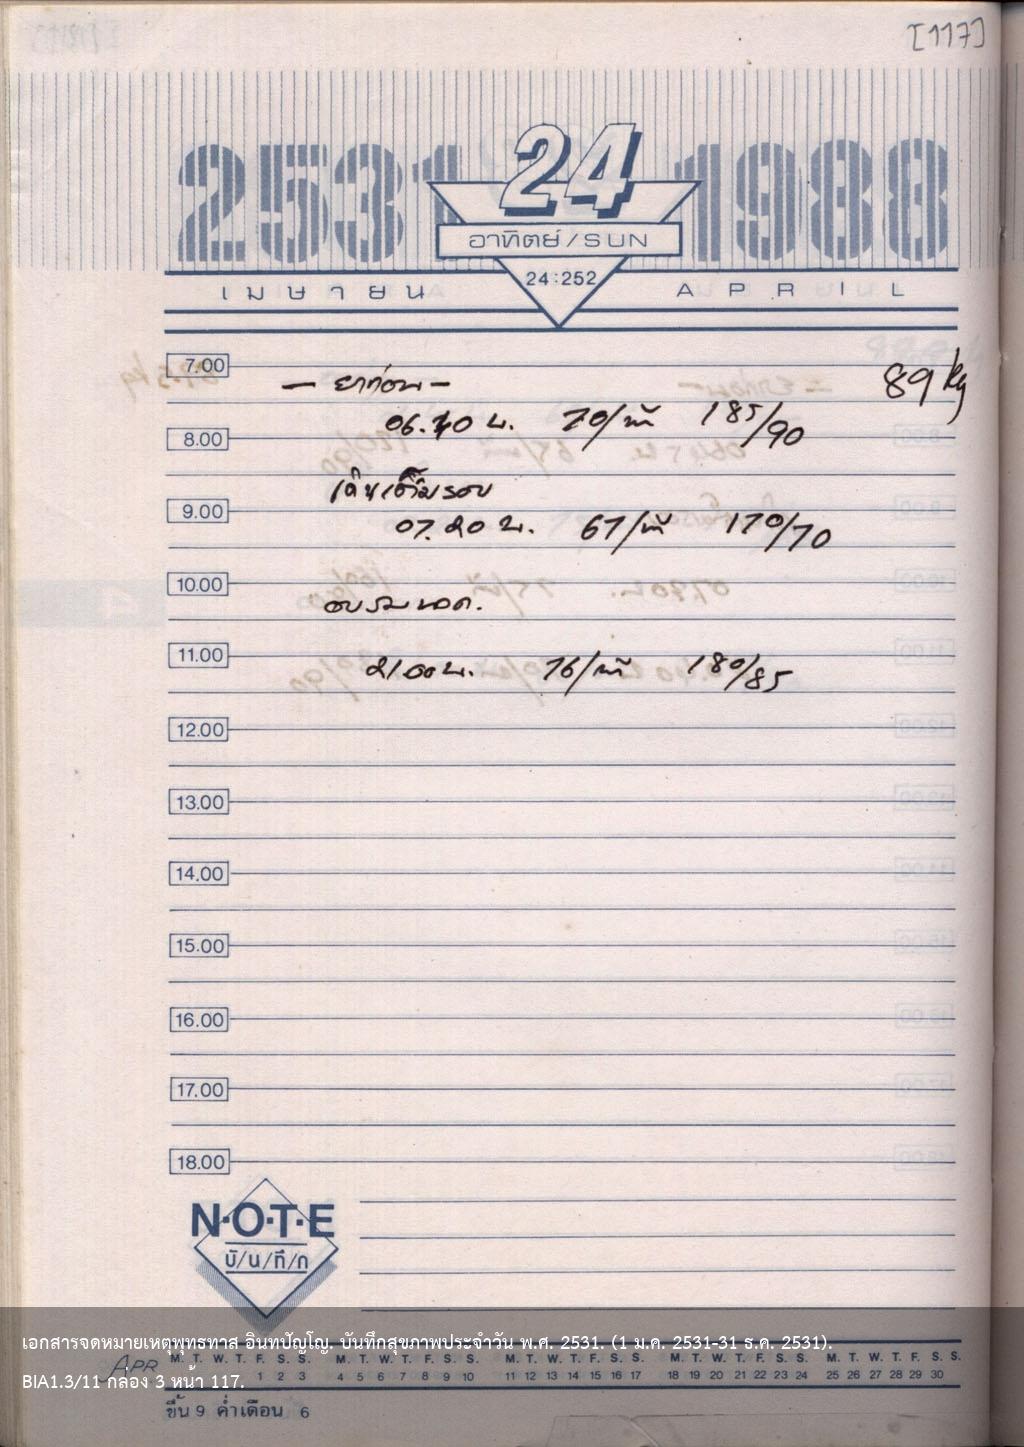 [117]
2531 24 1988
อาทิตย์/SUN
24:252
เมษายน APRIL
7.00
89 kg
— ยาก่อน —
06.40 น. 70/นาที 185/90
8.00
เดินเต็มรอบ
9.00
07.20 น. 67/นาที 170/70
10.00
อบรม
11.00
21.00 น. 76/นาที 180/85
12.00
13.00
14.00
15.00
16.00
17.00
18.00
N·O·T·E
บั/น/ทึ/ก
เอกสารจดหมายเหตุพุทธทาส อินทปัญโญ. บันทึกสุขภาพประจำวัน พ.ศ. 2531. (1 ม.ค. 2531-31 ธ.ค. 2531).
APR M. T. W. T. F. S. S. M. T. W. T. F. S. S. M. T. W. T. F. S. S. M. T. W. T. F. S. S. M. T. W. T. F. S. S.
1 2 3 4 5 6 7 8 9 10 11 12 13 14 15 16 17 18 19 20 21 22 23 24 25 26 27 28 29 30
BIA1.3/11 กล่อง 3 หน้า 117.
ขึ้น 9 ค่ำเดือน 6